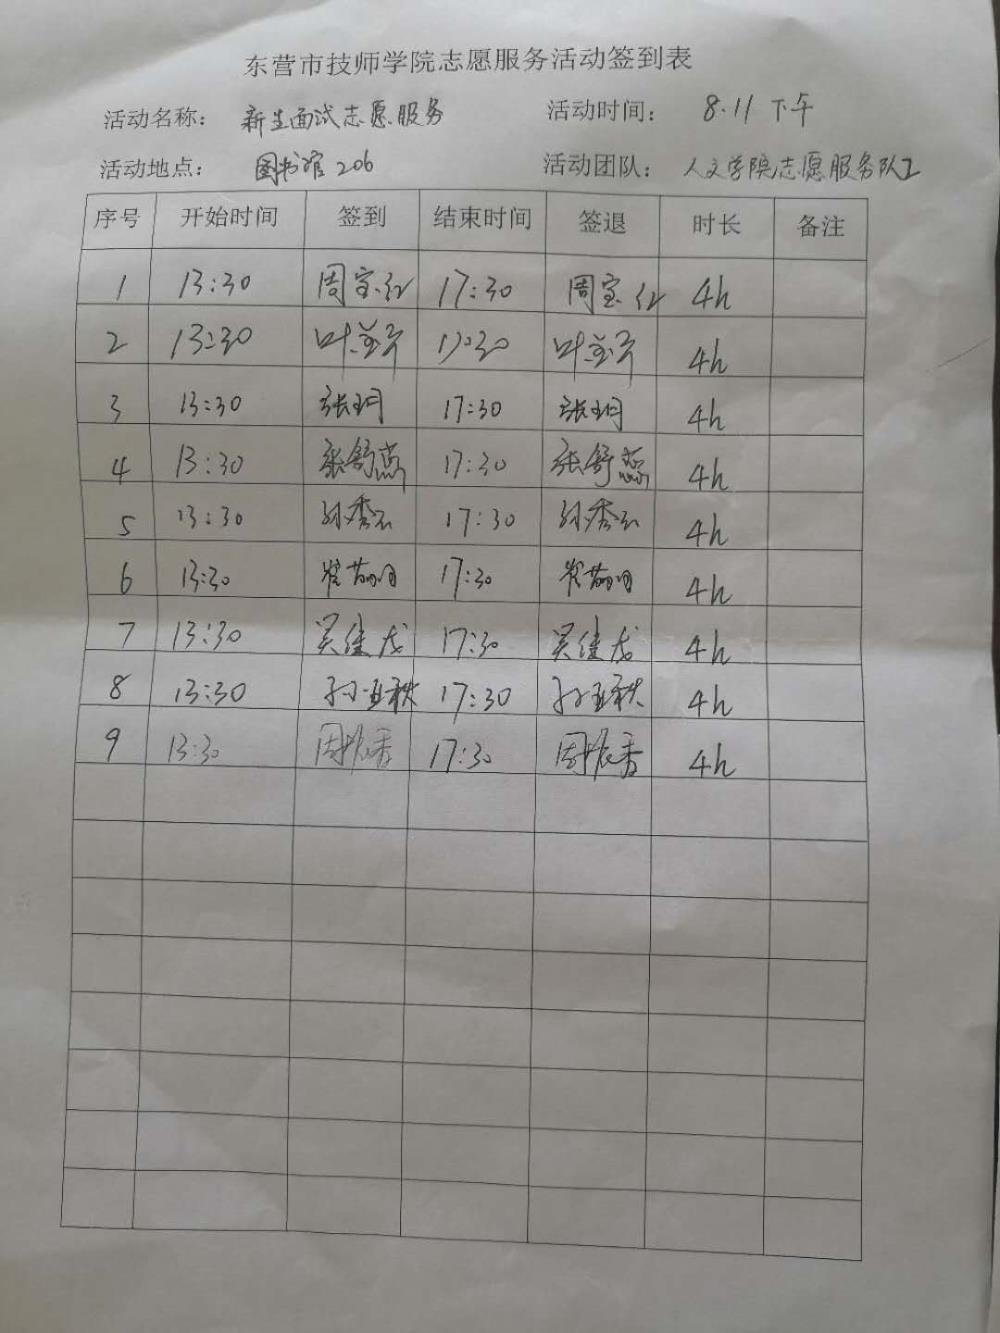 东营市技师学院志愿服务活动签到表
活动名称： 新生面试志愿服务 活动时间： 8.11 下午
活动地点： 图书馆 206 活动团队： 人文学院志愿服务队
序号 开始时间 签到 结束时间 签退 时长 备注
1 13:30 周宝红 17:30 周宝红 4h
2 13:30 17:30 4h
3 13:30 张玥 17:30 张玥 4h
4 13:30 张舒蕊 17:30 张舒蕊 4h
5 13:30 孙秀云 17:30 孙秀云 4h
6 13:30 17:30 4h
7 13:30 吴佳龙 17:30 吴佳龙 4h
8 13:30 17:30 4h
9 13:30 17:30 4h